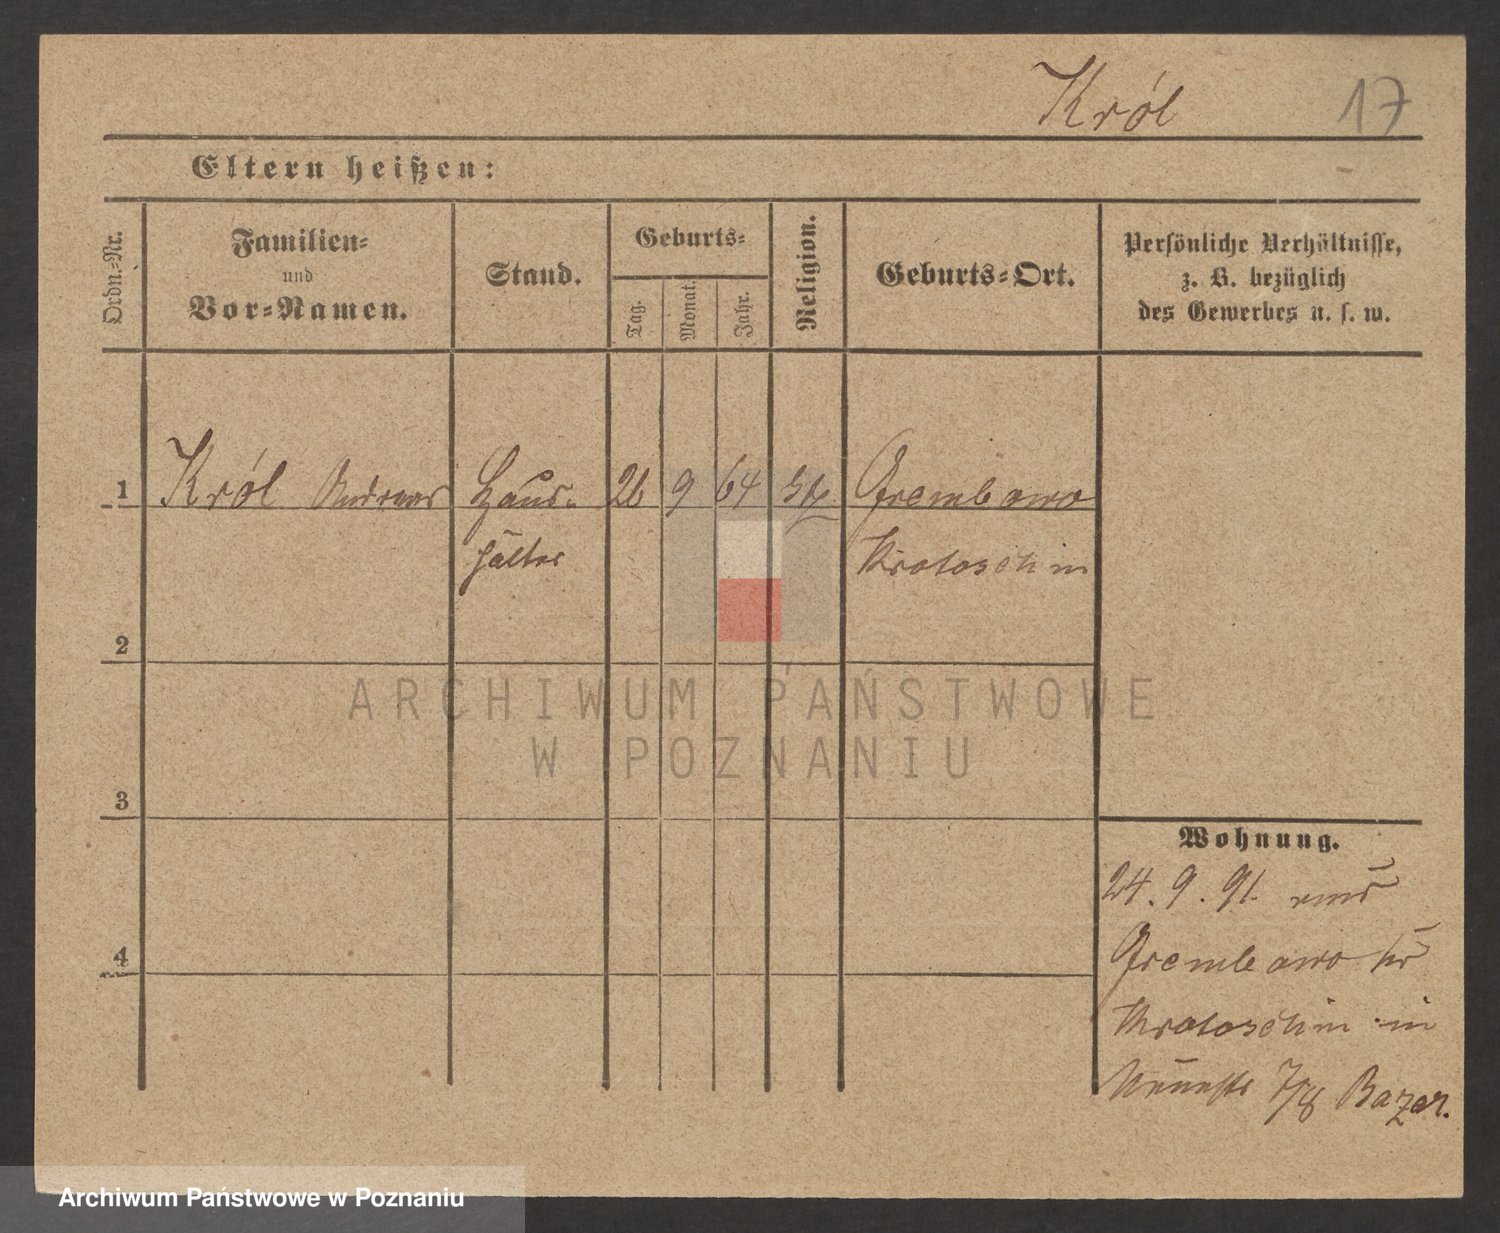 Król 17
Eltern heißen:
Ordn.-Nr.
Familien-
und
Vor-Namen.
Stand.
Geburts-
Tag.
Monat.
Jahr.
Religion.
Geburts-Ort.
Persönliche Verhältnisse,
z. B. bezüglich
des Gewerbes u. s. w.
1 Król Andreas Haus- 26 9 64 kth Grembowo
hälter Krotoschin
2
3
4
Wohnung.
24. 9. 91. aus
Grembowo Kr
Krotoschin in
Neuestr 7/8 Bazar.
ARCHIWUM PAŃSTWOWE
W POZNANIU
Archiwum Państwowe w Poznaniu